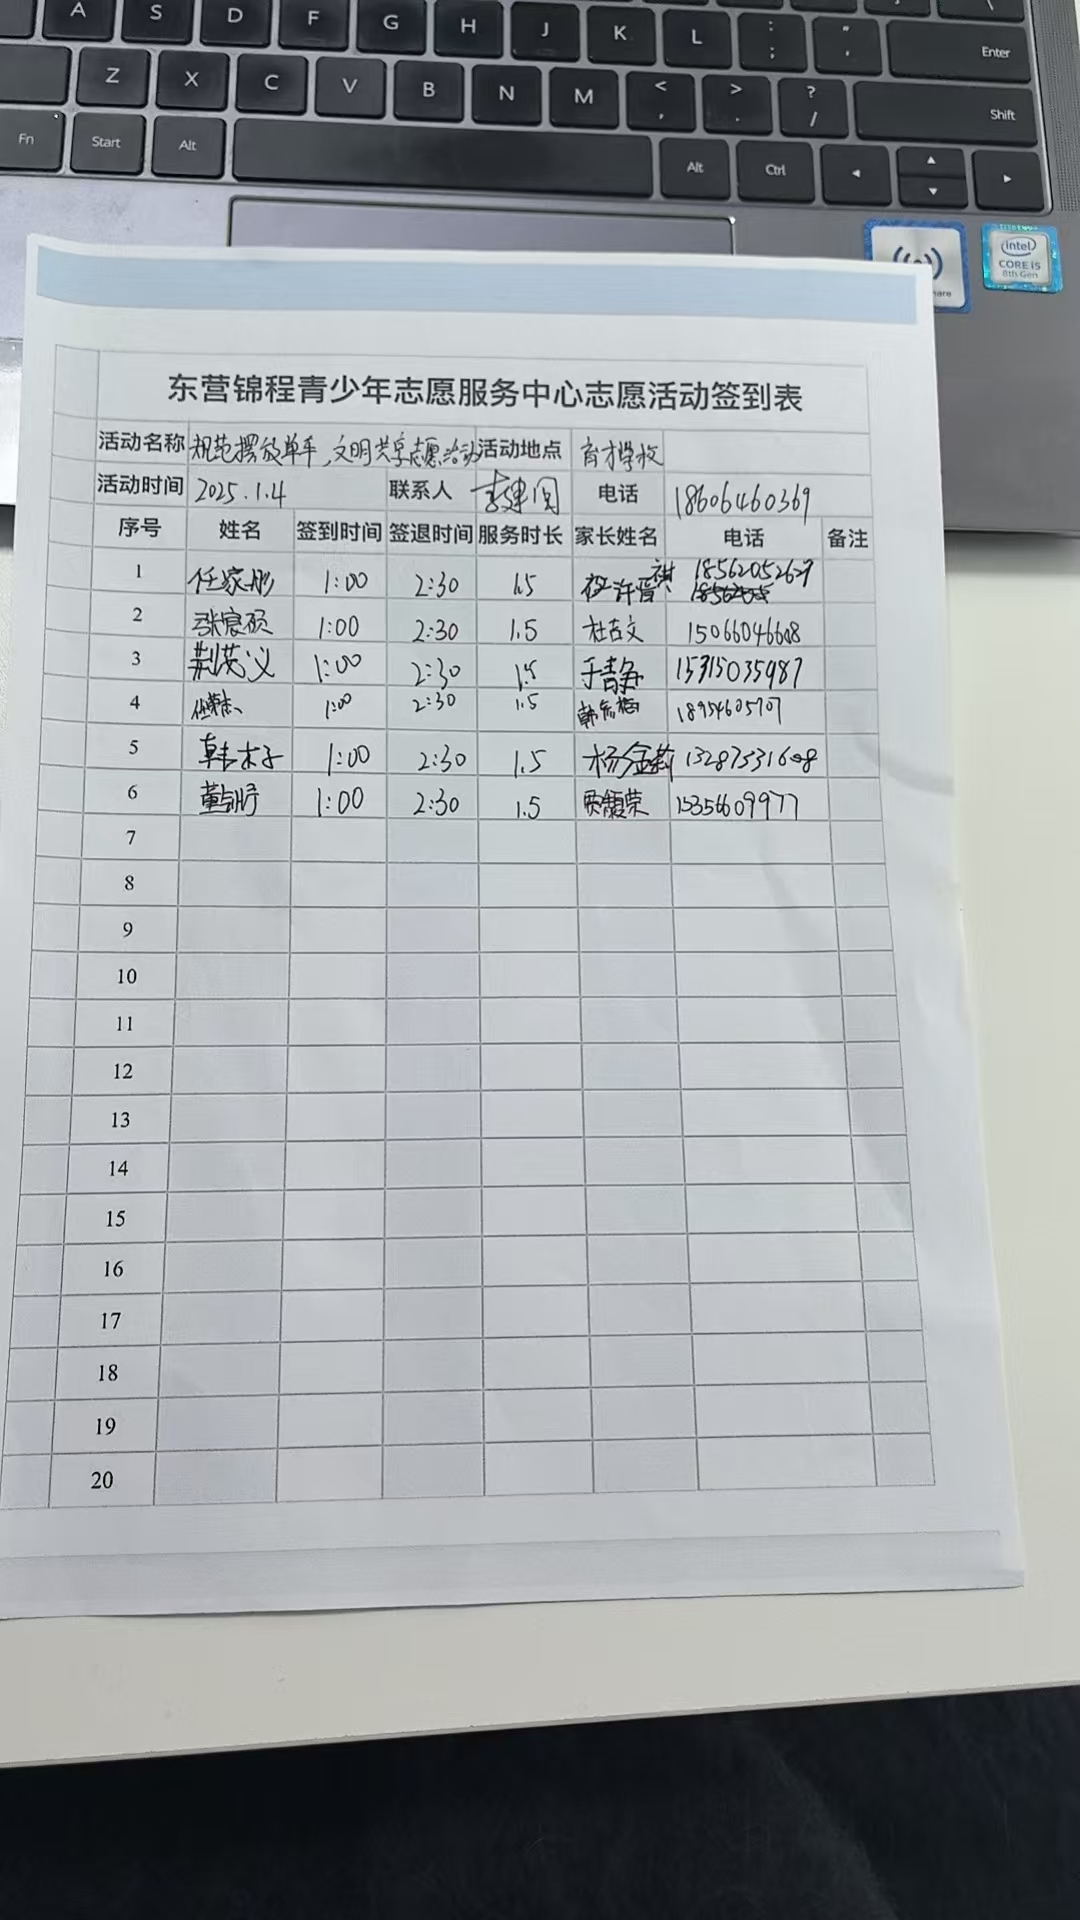 A S D F G H J K L : ; " ' Enter
Z X C V B N M < , > . ? / Shift
Fn Start Alt Alt Ctrl
intel
CORE i5
8th Gen
东营锦程青少年志愿服务中心志愿活动签到表
活动名称 规范摆放单车,文明共享志愿活动 活动地点 育才学校
活动时间 2025.1.4 联系人 电话 18606460369
序号 姓名 签到时间 签退时间 服务时长 家长姓名 电话 备注
1 任家彤 1:00 2:30 1.5 许晋祺 18562052629
2 张宸硕 1:00 2:30 1.5 杜吉文
3 荆茗义 1:00 2:30 1.5 于静 15315035987
4 1:00 2:30 1.5 18954605707
5 韩木子 1:00 2:30 1.5 杨金莉
6 1:00 2:30 1.5 15356609977
7
8
9
10
11
12
13
14
15
16
17
18
19
20